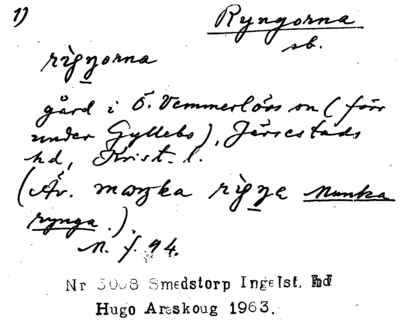 1) Ryngorna
sb.
rìŋŋorna
gård i Ö. Vemmerlövs sn (förr
under Gyllebo), Järrestads
hd, Krist. l.
(Äv. maŋka rìŋŋe Munka
rynga.).
M. f. 94.
Nr 5008 Smedstorp Ingelst. hd
Hugo Areskoug 1963.